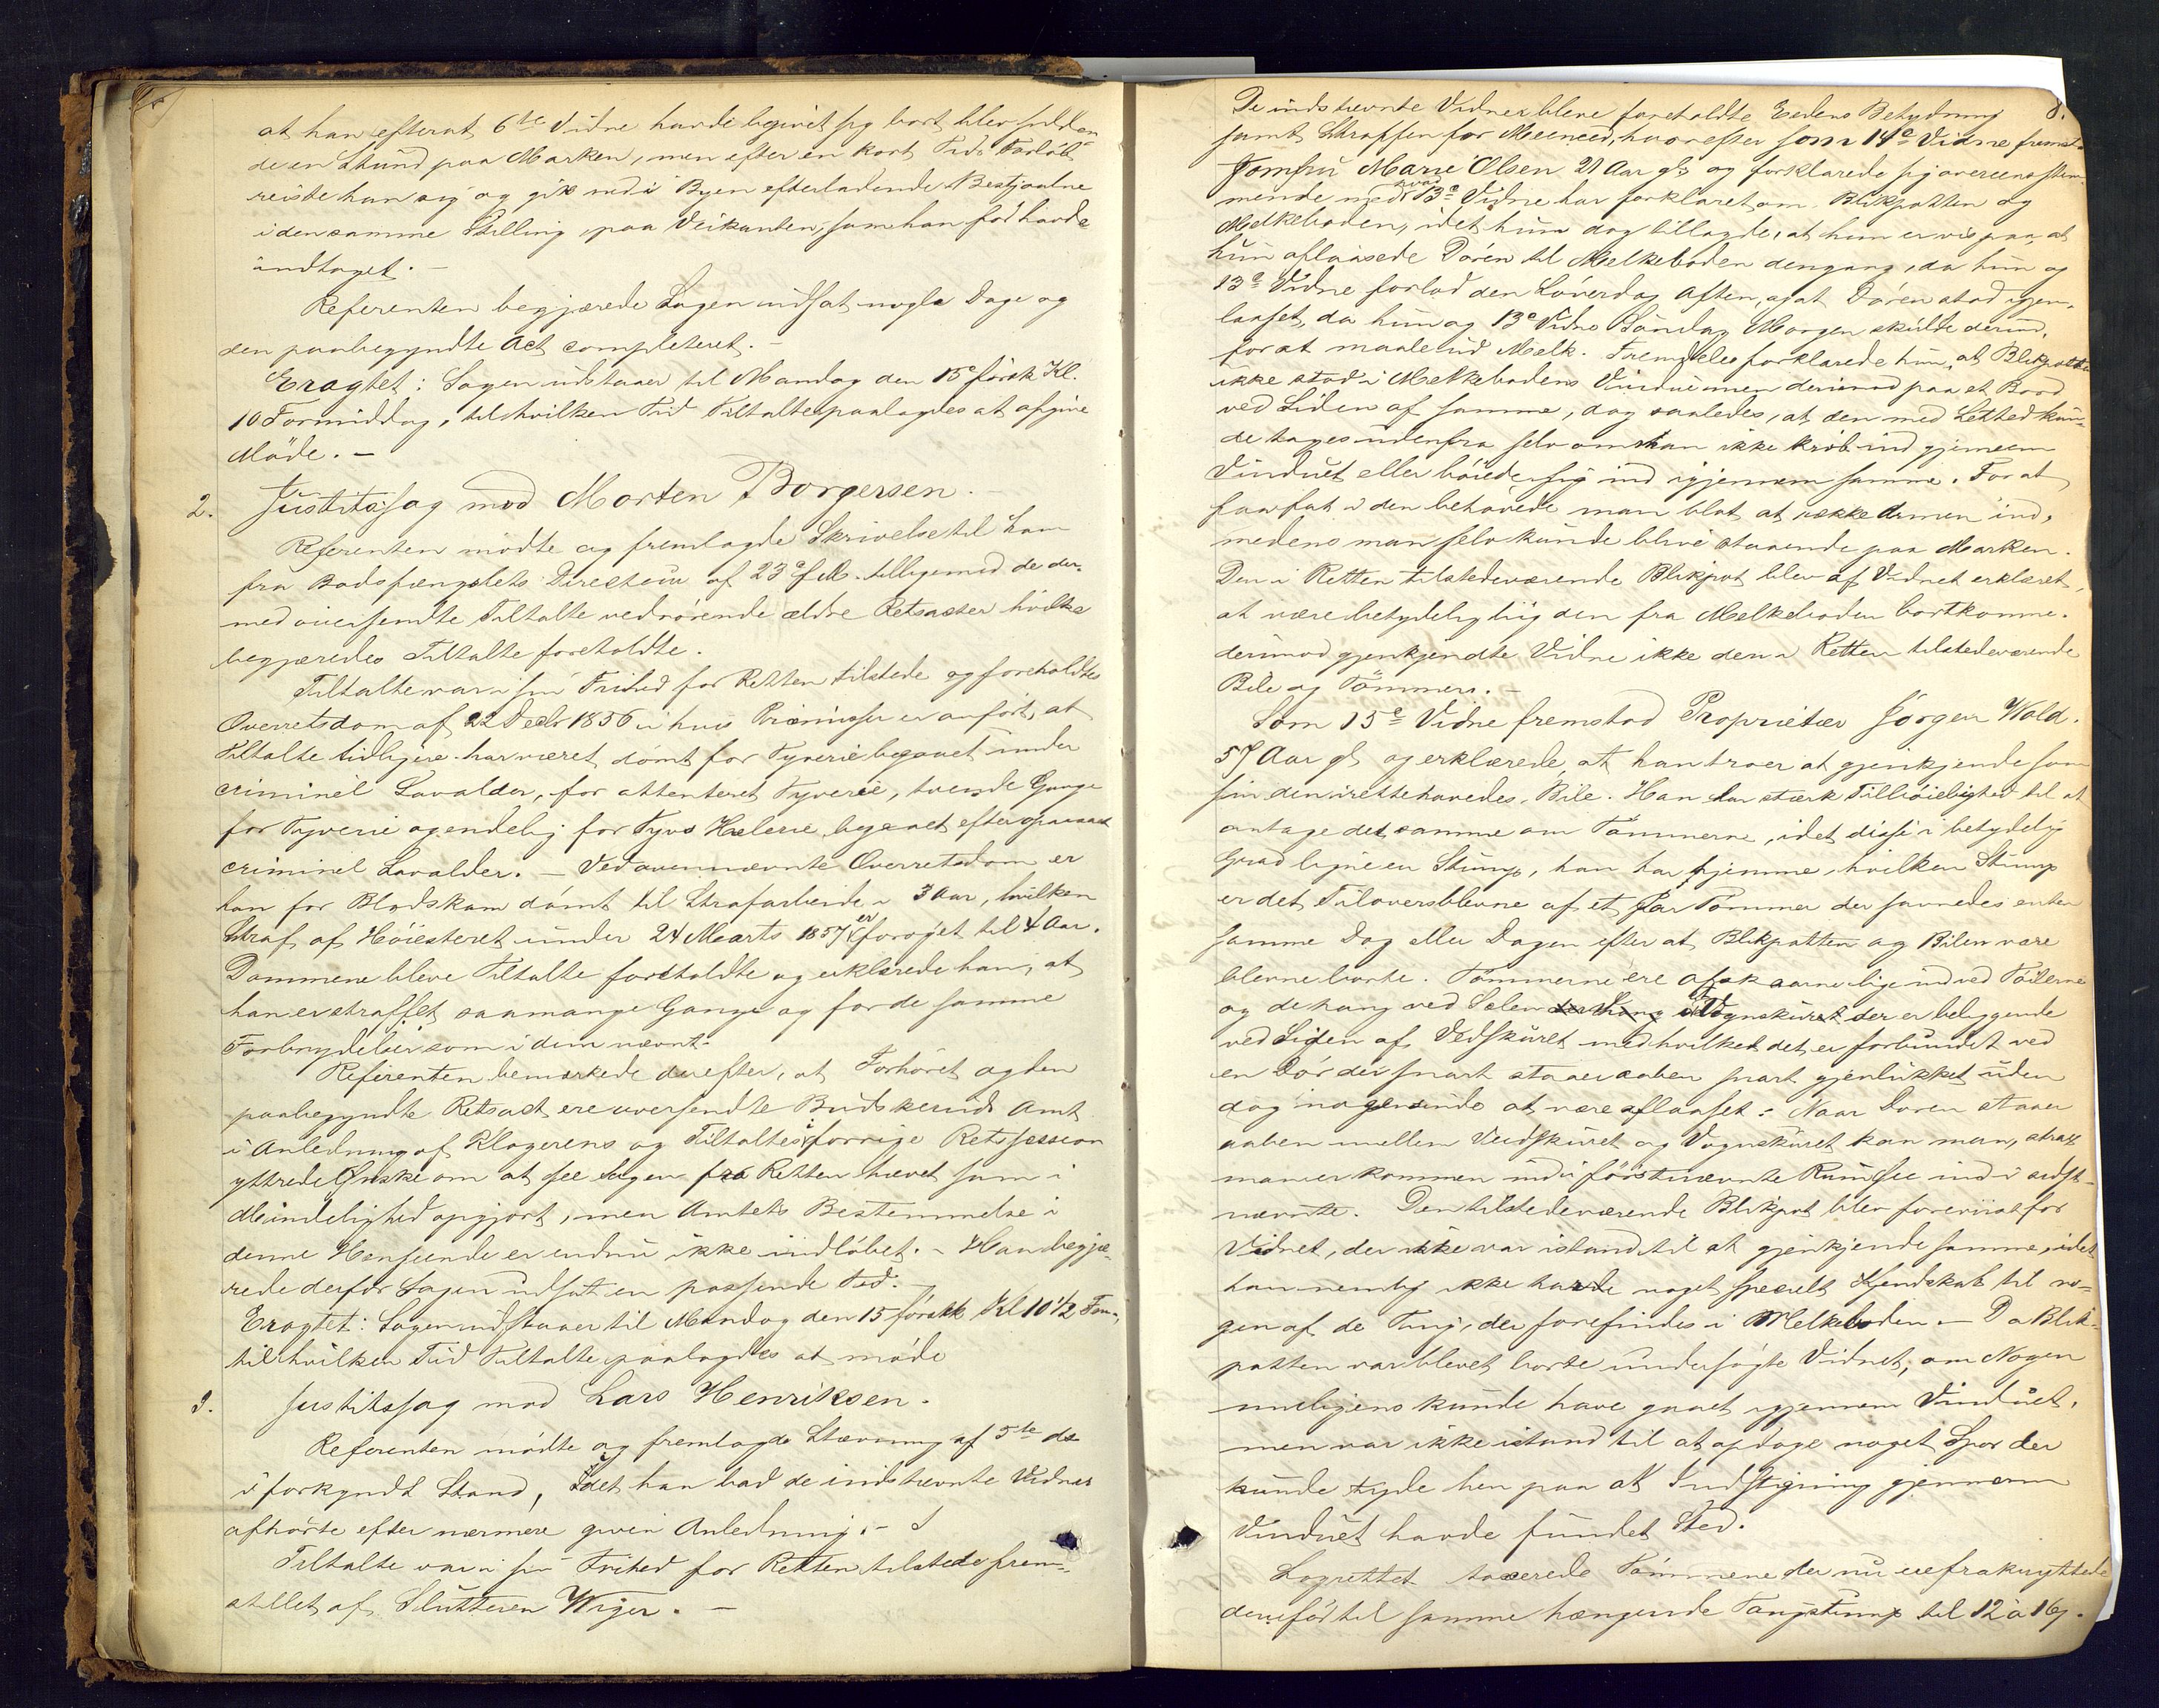 at han efterat 6te Vidne havde begivet sig bort blev sidden-
de en Stund paa Marken, men efter en kort Tids Forløb
reiste han sig og gik ned i Byen efterladende Bestjaalne
i den samme Stilling, paa Veikanten, som han før havde
indtaget. -
Referenten begjærede Sagen udsat nogle Dage og
den paabegyndte Act completeret. -
Eragtet: Sagen udstaaer til Mandag den 15de førstk. Kl.
10 Formiddag, til hvilken Tid Tiltalte paalagdes at afgive
Møde. -
2. Justitssag mod Morten Borgersen. -
Referenten mødte og fremlagde Skrivelse til ham
fra Bodsfængslets Directeur af 23de f. M. tilligemed de der-
med oversendte Tiltalte vedrørende ældre Retsacter hvilke
begjæredes Tiltalte foreholdte.
Tiltalte var i sin Frihed for Retten tilstede og foreholdtes
Overretsdom af 22 Decbr 1856 i hvis Præmisser er anført, at
Tiltalte tidligere har været dømt for Tyverie begaaet under
criminel Lavalder, for attenteret Tyverie, tvende Gange
for Tyverie og endelig for Tyvs Hælerie begaaet efter opnaaet
criminel Lavalder. - Ved ovennævnte Overretsdom er
han for Blodskam dømt til Strafarbeide i 3 Aar, hvilken
Straf af Høiesteret under 24 Marts 1857 er forøget til 4 Aar.
Dommene bleve Tiltalte foreholdte og erklærede han, at
han er straffet saamange Gange og for de samme
Forbrydelser som i dem nævnt.
Referenten bemærkede derefter, at Forhøret og den
paabegyndte Retsact ere oversendte Buskeruds Amt
i Anledning af Klagerens og Tiltaltes i forrige Retssession
yttrede Ønske om at see Sagen fra Retten hævet som i
Mindelighed opgjort, men Amtets Bestemmelse i
denne Henseende er endnu ikke indløbet. - Han begjæ-
rede derfor Sagen udsat en passende Tid. -
Eragtet: Sagen udstaaer til Mandag den 15 førstk. Kl 10 1/2 Form.,
til hvilken Tid Tiltalte paalagdes at møde
3. Justitssag mod Lars Henriksen.
Referenten mødte og fremlagde Stævning af 5te ds
i forkyndt Stand, idet han bad de indstævnte Vidner
afhørte efter nærmere given Anledning. -
Tiltalte var i sin Frihed for Retten tilstede frem-
stillet af Slutteren Wiger. -
8.
De indstævnte Vidner bleve foreholdte Eedens Betydning
samt Straffen for Meeneed, hvorefter som 14de Vidne fremstod
Jomfru Marie Olsen 21 Aar gl. og forklarede sig overeensstem-
mende med hvad 13de Vidne har forklaret om Blikpotten og
Melkeboden, idet hun dog tillagde, at hun er vis paa, at
hun aflaasede Døren til Melkeboden dengang, da hun og
13de Vidne forlod den Løverdag Aften, og at Døren stod igjen-
laaset, da hun og 13de Vidne Søndag Morgen skulde derind,
for at maale ud Melk. Fremdeles forklarede hun, at Blikpotten
ikke stod i Melkebodens Vindue men derimod paa et Bord
ved Siden af samme, dog saaledes, at den med Lethed kun-
de tages udenfra selv om man ikke krøb ind gjennem
Vinduet eller bøiede sig ind igjennem samme. For at
faa fat i den behøvede man blot at række Armen ind,
medens man selv kunde blive staaende paa Marken.
Den i Retten tilstedeværende Blikpot blev af Vidnet erklæret
at være betydelig liig den fra Melkeboden bortkomne.
derimod gjenkjendte Vidne ikke den i Retten tilstedeværende
Bile og Tømmer. -
Som 15de Vidne fremstod Proprietær Jørgen Wold.
57 Aar gl. og erklærede, at han troer at gjenkjende som
sin den irettehavedes Bile. Han har stærk Tilbøielighed til at
antage det samme om Tømmerne, idet disse i betydelig
Grad ligne en Stump, han har hjemme, hvilken Stump
er det Tiloversblevne af et Par Tømmer der savnedes enten
samme Dag eller Dagen efter at Blikpotten og Bilen vare
blevne borte. Tømmerne ere afskaarne lige ind ved Tøilerne
og de hang ved Selen i et Vognskuret der er beliggende
ved Siden af Vedskuret med hvilket det er forbundet ved
en Dør der snart staaer aaben snart gjenlukket uden
dog nogensinde at være aflaaset. Naar Døren staaer
aaben mellem Vedskuret og Vognskuret kan man, strax
man er kommen ind i førstnævnte Rum see ind i sidst-
nævnte. Den tilstedeværende Blikpot blev foreviist for
Vidnet, der ikke var istand til at gjenkjende samme, idet
han nemlig ikke havde noget specielt Kjendskab til no-
gen af de Ting, der forefindes i Melkeboden. - Da Blik-
potten var blevet borte undersøgte Vidnet, om Nogen
muligens kunde have gaaet igjennem Vinduet,
men var ikke istand til at opdage noget Spor der
kunde tyde hen paa at Indstigning gjennem
Vinduet havde fundet Sted.
Lagrettet taxerede Tømmene der nu ere fraknyttede
den før til samme hængende Tougstump til 12 à 16